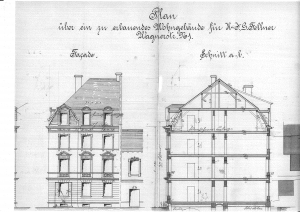 Plan
über ein zu erbauendes Wohngebäude für H. G. Fellner
Wagnerstr. No 1.
Façade.
Schnitt a-b.